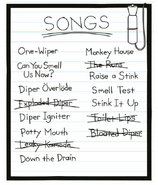 SONGS
One-Wiper
Can You Smell
Us Now?
Diper Överlöde
Exploded Diper
Diper Igniter
Potty Mouth
Leaky
Down the Drain
Monkey House
The Runs
Raise a Stink
Smell Test
Stink It Up
Toilet Lips
Bloated Diper